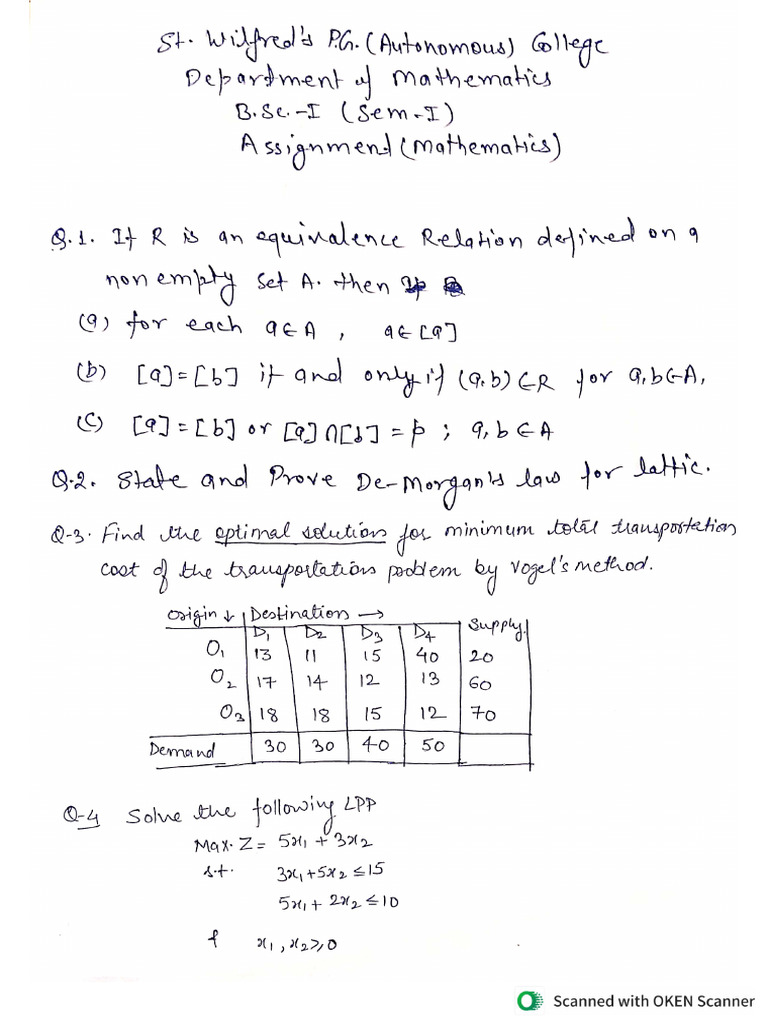 St. Wilfred's P.G. (Autonomous) College
Department of Mathematics
B.Sc.-I (Sem-I)
Assignment (Mathematics)
Q.1. If R is an equivalence Relation defined on a
non empty set A. then
(a) for each a∈A , a∈[a]
(b) [a]=[b] if and only if (a,b)∈R for a,b∈A,
(c) [a]=[b] or [a]∩[b]=ϕ ; a,b∈A
Q.2. State and Prove De-Morgan's law for lattic.
Q-3. Find the optimal solution for minimum total transportation
cost of the transportation problem by Vogel's method.
Origin ↓ Destination → Supply
D1 D2 D3 D4
O1 13 11 15 40 20
O2 17 14 12 13 60
O3 18 18 15 12 70
Demand 30 30 40 50
Q-4 Solve the following LPP
Max. Z = 5x1 + 3x2
s.t. 3x1+5x2 ≤15
5x1+ 2x2 ≤10
& x1, x2 ≥0
Scanned with OKEN Scanner